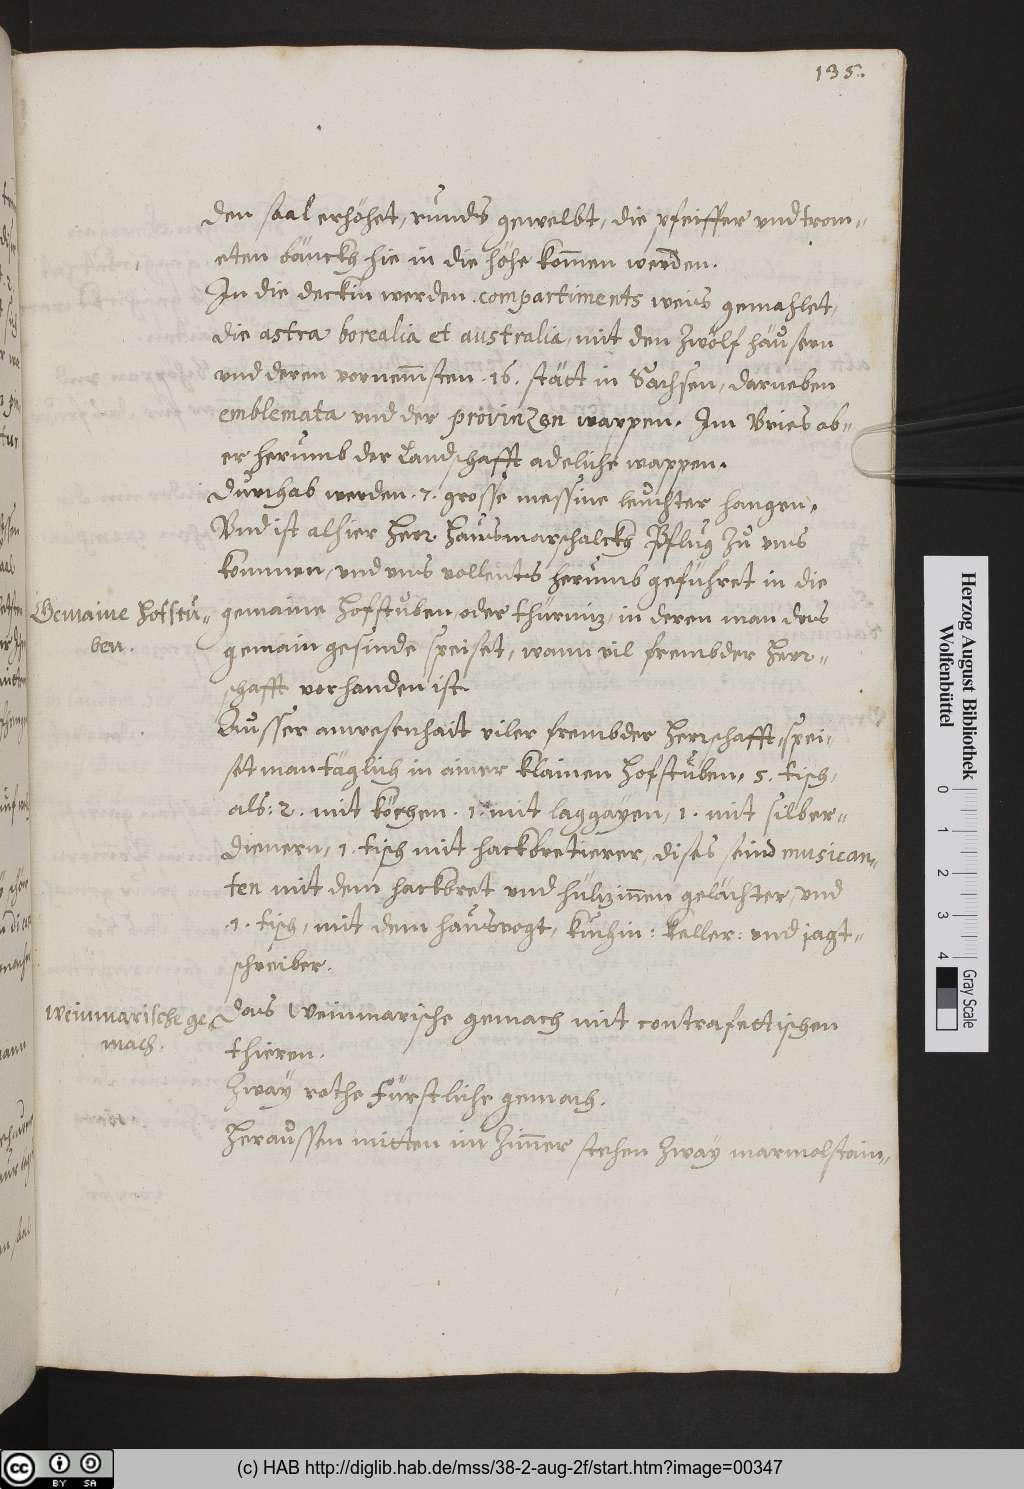 135.
den saal erhöhet, runds gewelbt, die pfeiffer und trom-
eten bäuckh hie in die höhe kom̅en werden.
In die deckin werden .compartiments weis gemahlet,
die astra borealia et australia, mit den zwölf häusern
und deren vornem̅sten .16. stätt in Sachsen, darneben
emblemata und der provinzen wappen. Im Vries ab-
er herumb der Landschafft adeliche wappen.
Durchab werden .7. grosse messine leuchter hangen.
Und ist alhier Herr Hausmarschalckh Pflug zu uns
kommen, und uns vollents herumb geführet in die
Gemaine Hofstu-
ben.
gemaine Hofstuben, oder thürniz, in deren man das
gemain gesinde speiset, wann vil frembder Herr-
schafft vorhanden ist.
Ausser anwesenhait viler frembder Herrschafft, spei-
set man täglich in ainer klainen Hofstuben, 5. tisch,
als: 2. mit köchen. 1. mit laggayen, 1. mit silber-
dienern, 1. tisch mit hackbretierer, dises seind musican-
ten mit dem hackbret und hülzin̅en gelächter, und
.1. tisch, mit dem hausvogt, kuchin: keller: und jagt-
schreiber.
Weinmarische ge-
mach.
Das Weinmarische gemach mit contrafettischen
thieren.
Zway rothe Fürstliche gemach.
Heraussen mitten im Zim̅er stehen zway marmolstain-
(c) HAB http://diglib.hab.de/mss/38-2-aug-2f/start.htm?image=00347
Herzog August Bibliothek
Wolfenbüttel
0 1 2 3 4
Gray Scale
CC BY SA